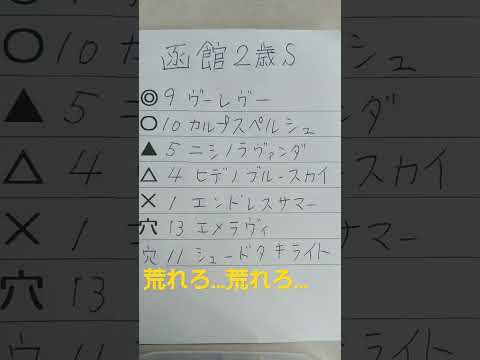 函館2歳S
◎ 9 ヴーレヴー
○ 10 カルプスペルシュ
▲ 5 ニシノラヴァンダ
△ 4 ヒデノブルースカイ
× 1 エンドレスサマー
穴 13 エメラヴィ
穴 11 シュードタキライト
荒れろ...荒れろ...